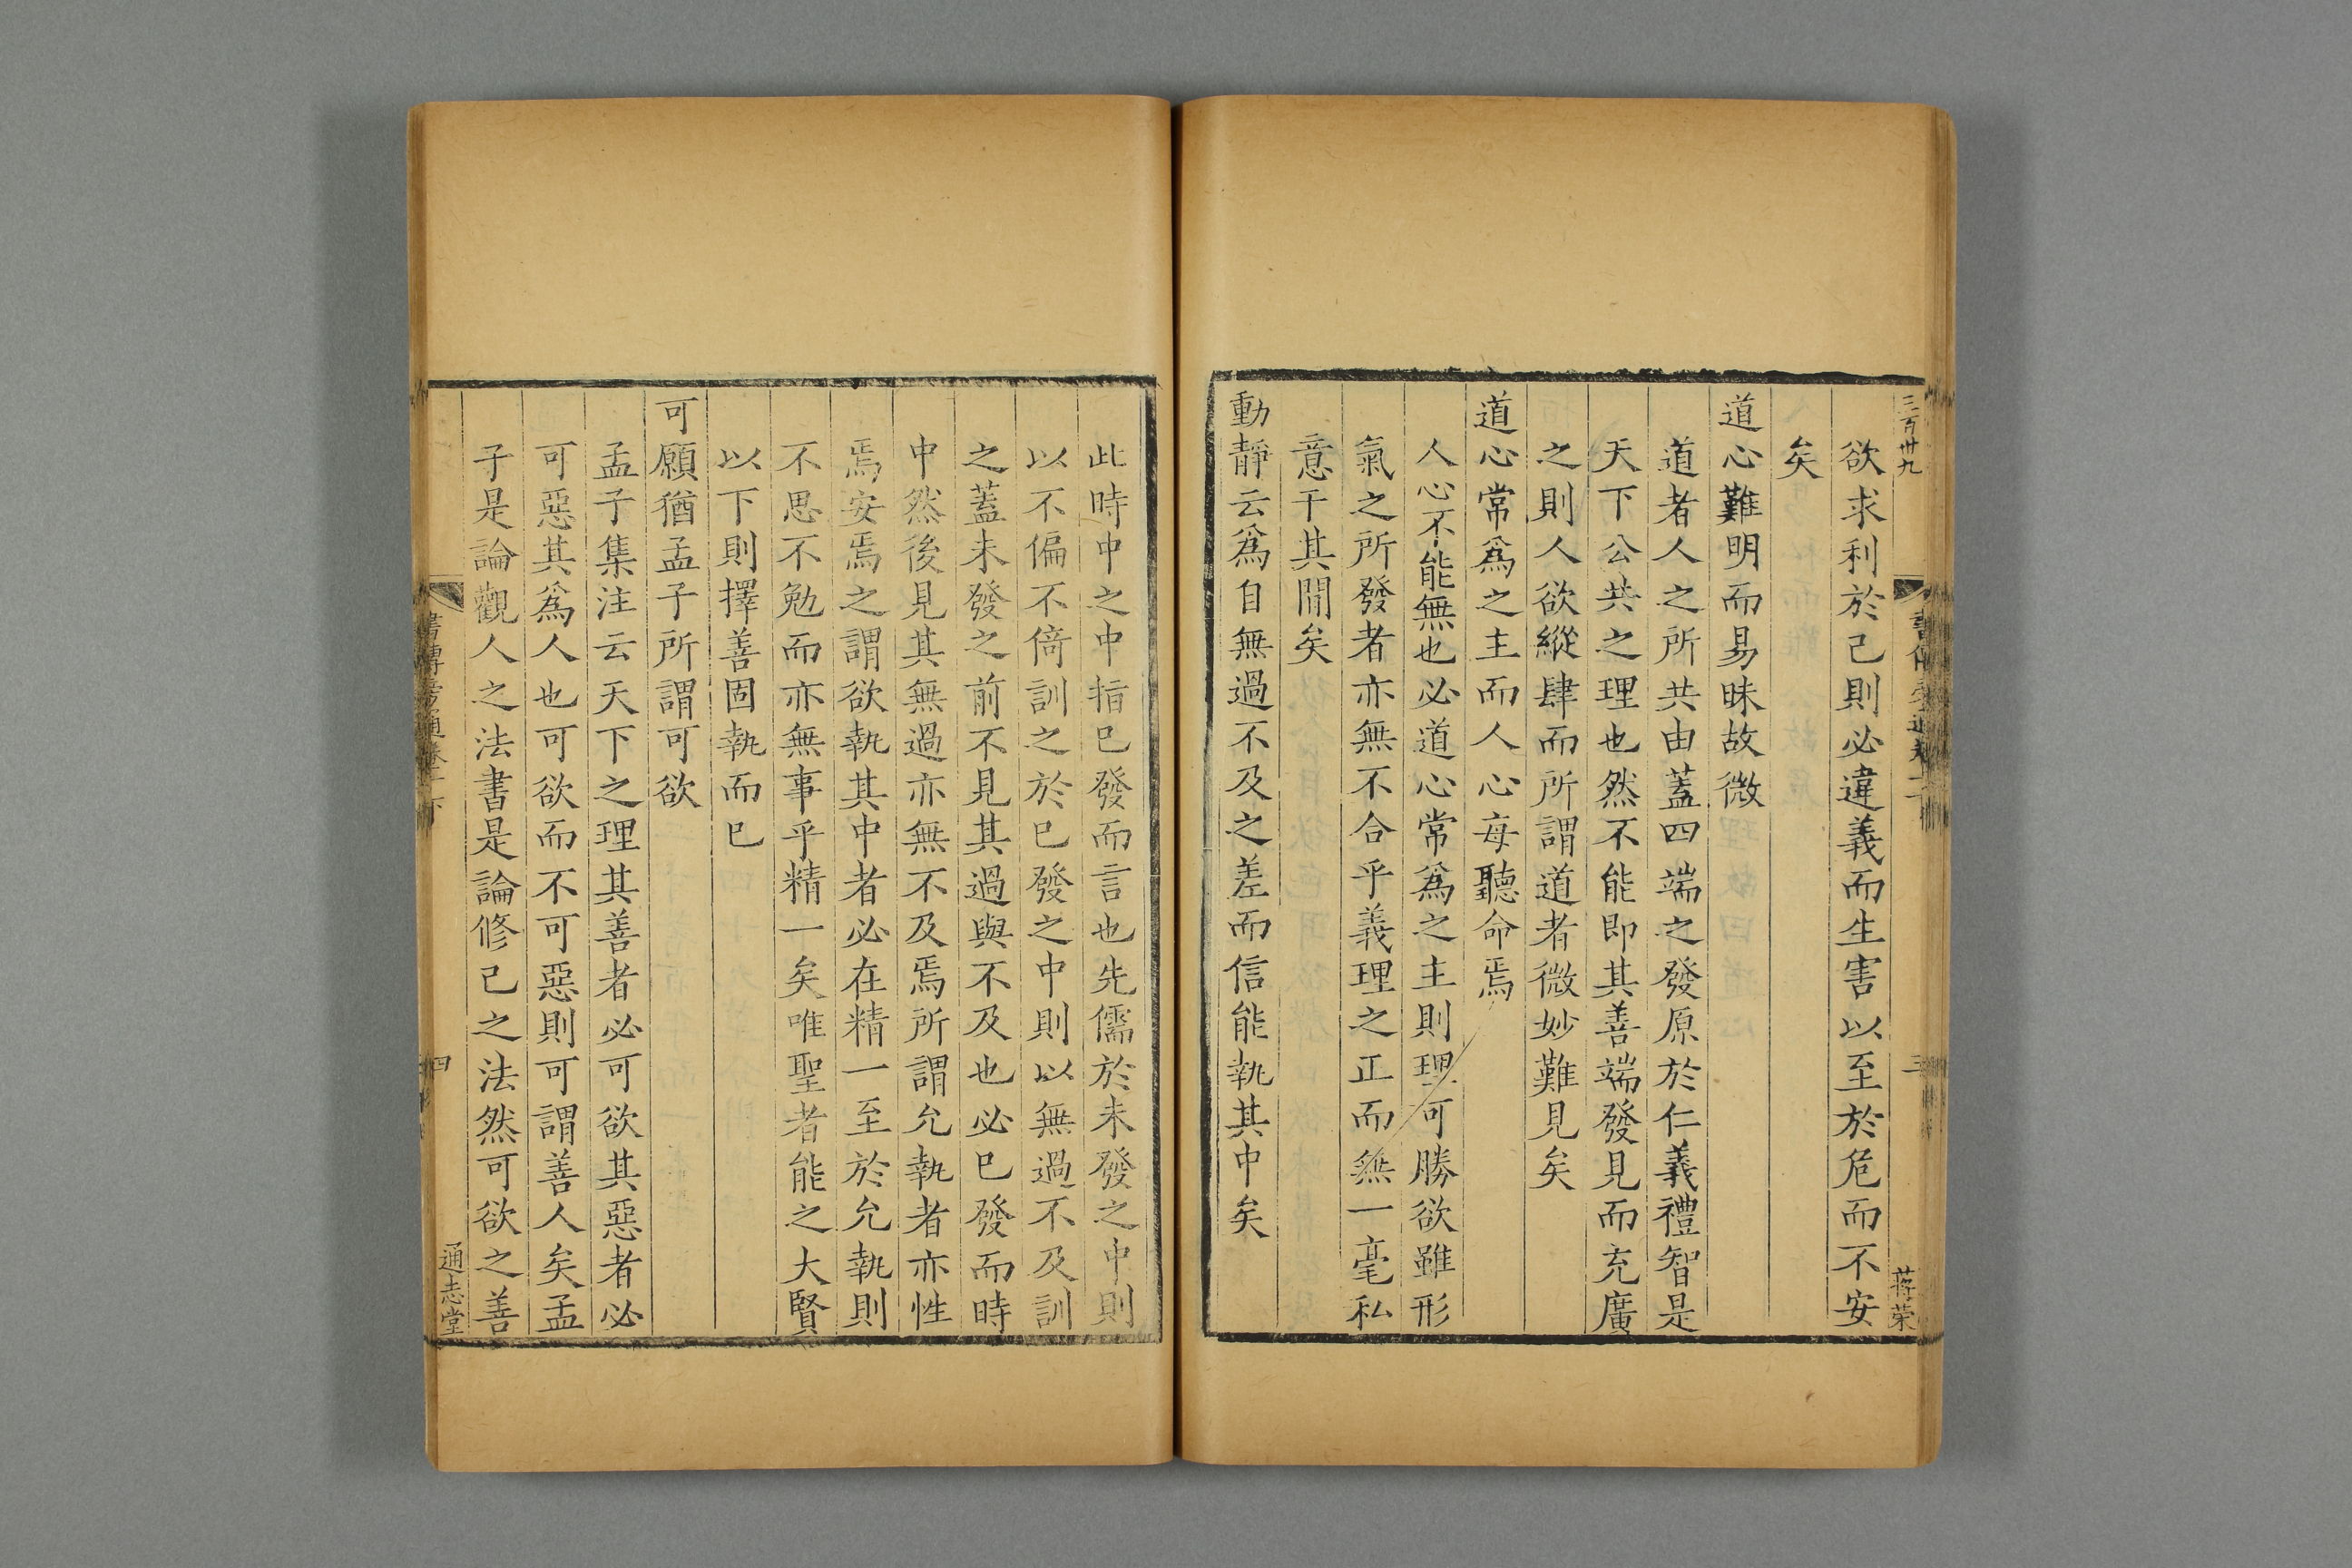 三百卅九
蒋荣
欲求利於己則必違義而生害以至於危而不安
矣
道心難明而易昧故微
道者人之所共由蓋四端之發原於仁義禮智是
天下公共之理也然不能即其善端發見而充廣
之則人欲縱肆而所謂道者微妙難見矣
道心常爲之主而人心每聽命焉
人心不能無也必道心常爲之主則理可勝欲雖形
氣之所發者亦無不合乎義理之正而無一毫私
意干其間矣
動靜云爲自無過不及之差而信能執其中矣
此時中之中指已發而言也先儒於未發之中則
以不偏不倚訓之於已發之中則以無過不及訓
之蓋未發之前不見其過與不及也必已發而時
中然後見其無過亦無不及焉所謂允執者亦性
焉安焉之謂欲執其中者必在精一至於允執則
不思不勉而亦無事乎精一矣唯聖者能之大賢
以下則擇善固執而已
可願猶孟子所謂可欲
孟子集注云天下之理其善者必可欲其惡者必
可惡其爲人也可欲而不可惡則可謂善人矣孟
子是論觀人之法書是論修己之法然可欲之善
書傳旁通卷一下
四
通志堂